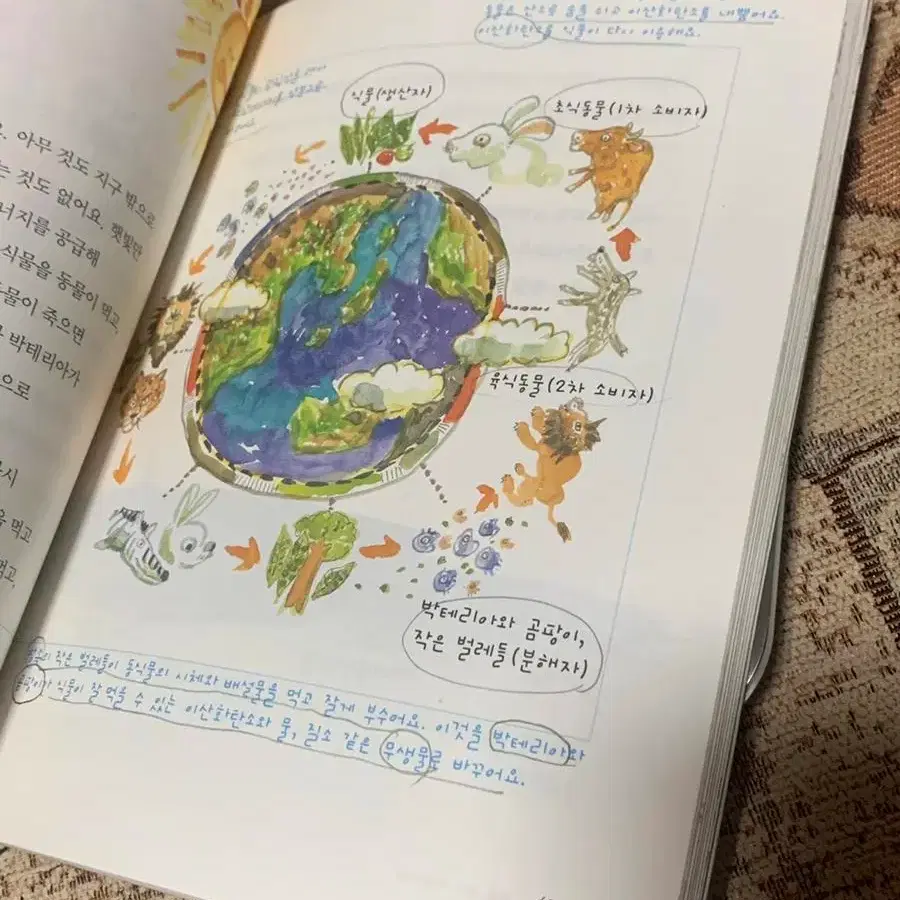 요. 아무 것도 지구 밖으로
는 것도 없어요. 햇빛만
너지를 공급해
식물을 동물이 먹고,
동물이 죽으면
박테리아가
으로
다시
을 먹고
먹고,
산소로 숨을 쉬고 이산화탄소를 내뿜어요.
이산화탄소를 식물이 다시 이용해요.
식물(생산자)
초식동물(1차 소비자)
육식동물(2차 소비자)
박테리아와 곰팡이,
작은 벌레들(분해자)
작은 벌레들이 동식물의 시체와 배설물을 먹고 잘게 부수어요. 이것을 박테리아와
곰팡이가 식물이 잘 먹을 수 있는 이산화탄소와 물, 질소 같은 무생물로 바꾸어요.